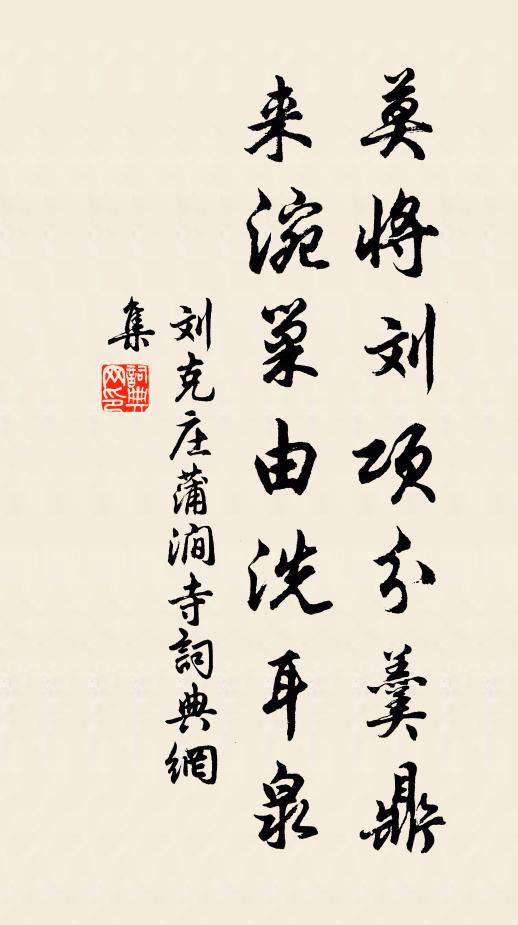 莫将刘项分羹鼎
来涴巢由洗耳泉
刘克庄蒲涧寺詞典網
集
詞典网印